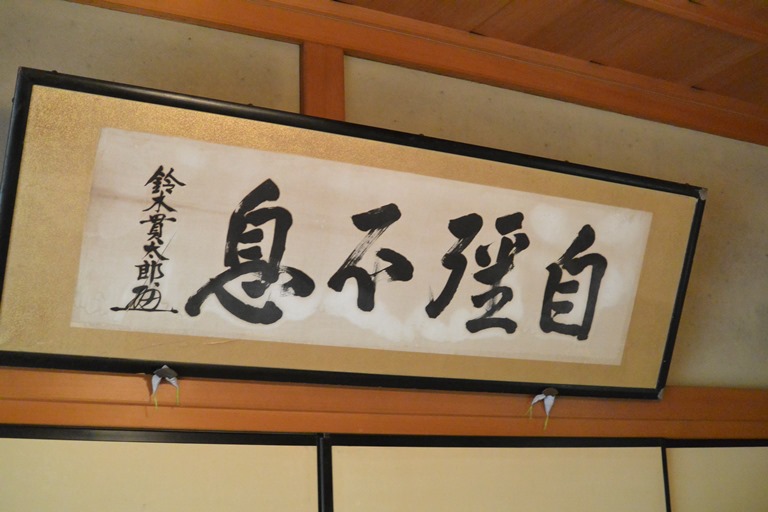 自彊不息
鈴木貫太郎